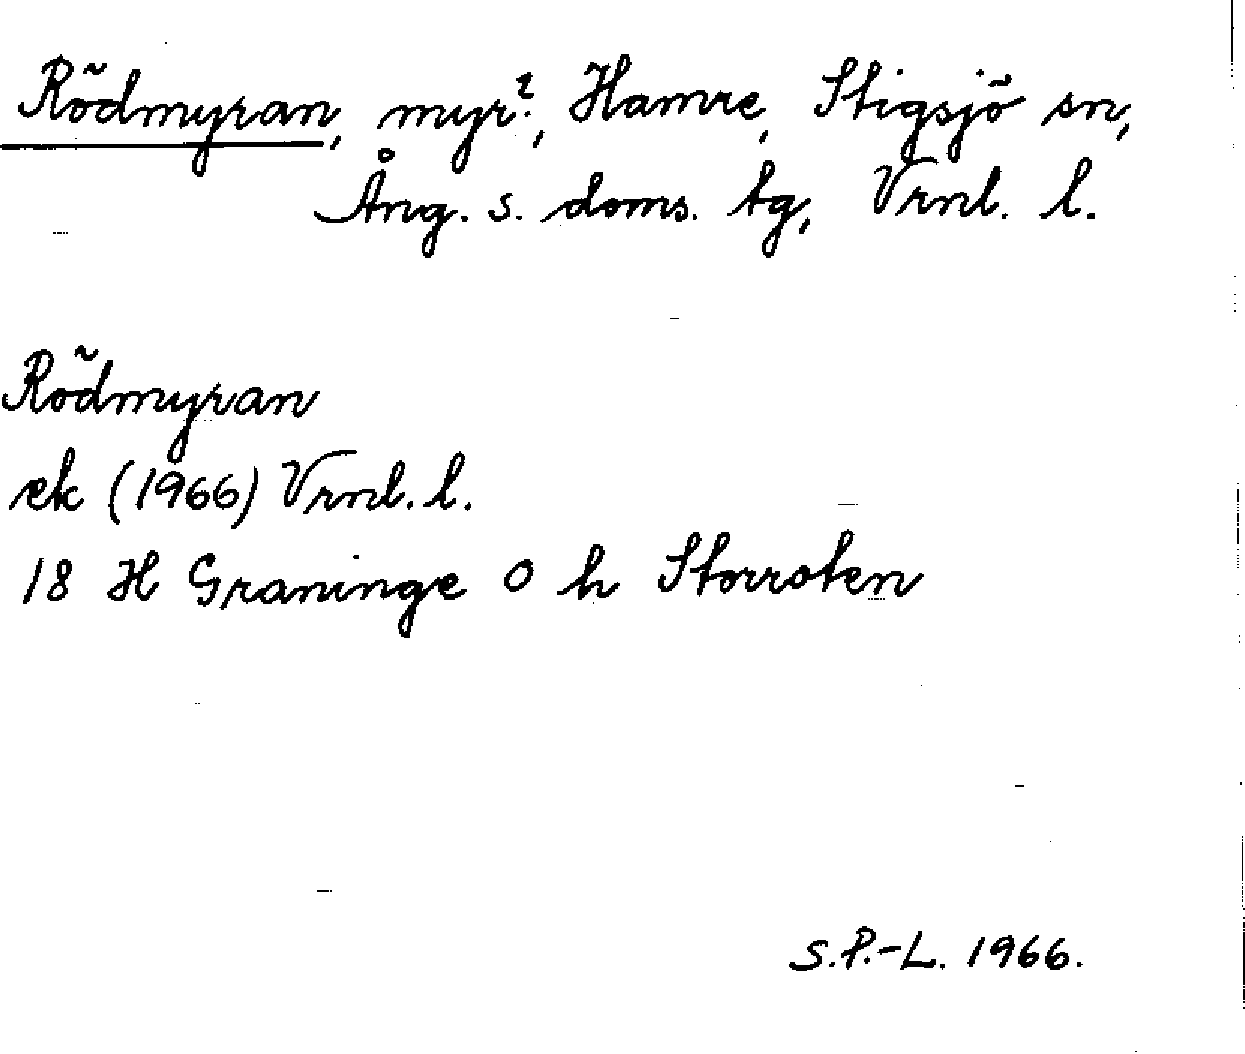 Rödmyran, myr?, Hamre, Stigsjö sn,
Ång. s. doms. tg, Vrnl. l.
Rödmyran
ek (1966) Vrnl. l.
18 H Graninge O h Storroten
S.P.-L. 1966.